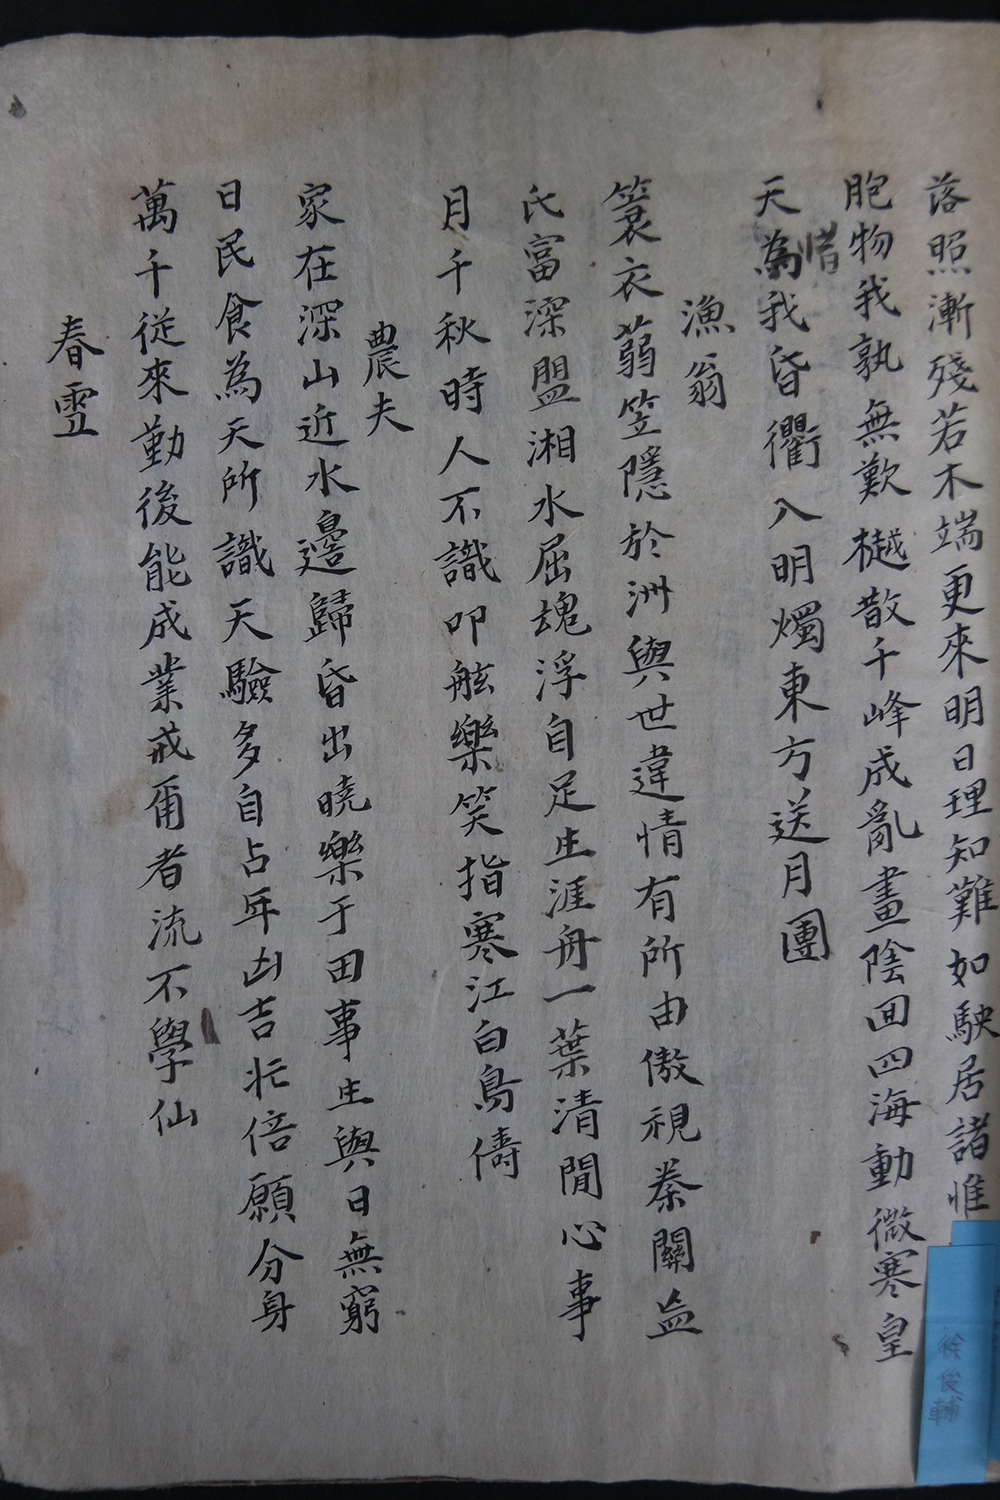 落照漸殘若木端更來明日理知難如駛居諸惟
胞物我孰無歎樾散千峰成亂畫陰回四海動微寒皇
天為我昏衢入明燭東方送月團
惜
漁翁
簑衣蒻笠隱於洲與世違情有所由傲視秦關孟
氏富深盟湘水屈魂浮自足生涯舟一葉清閒心事
月千秋時人不識叩舷樂笑指寒江白鳥儔
農夫
家在深山近水邊歸昏出曉樂于田事生與日無窮
日民食為天所識天驗多自占年凶吉北倍願分身
萬千從來勤後能成業戒爾者流不學仙
春雪
徐俊輔